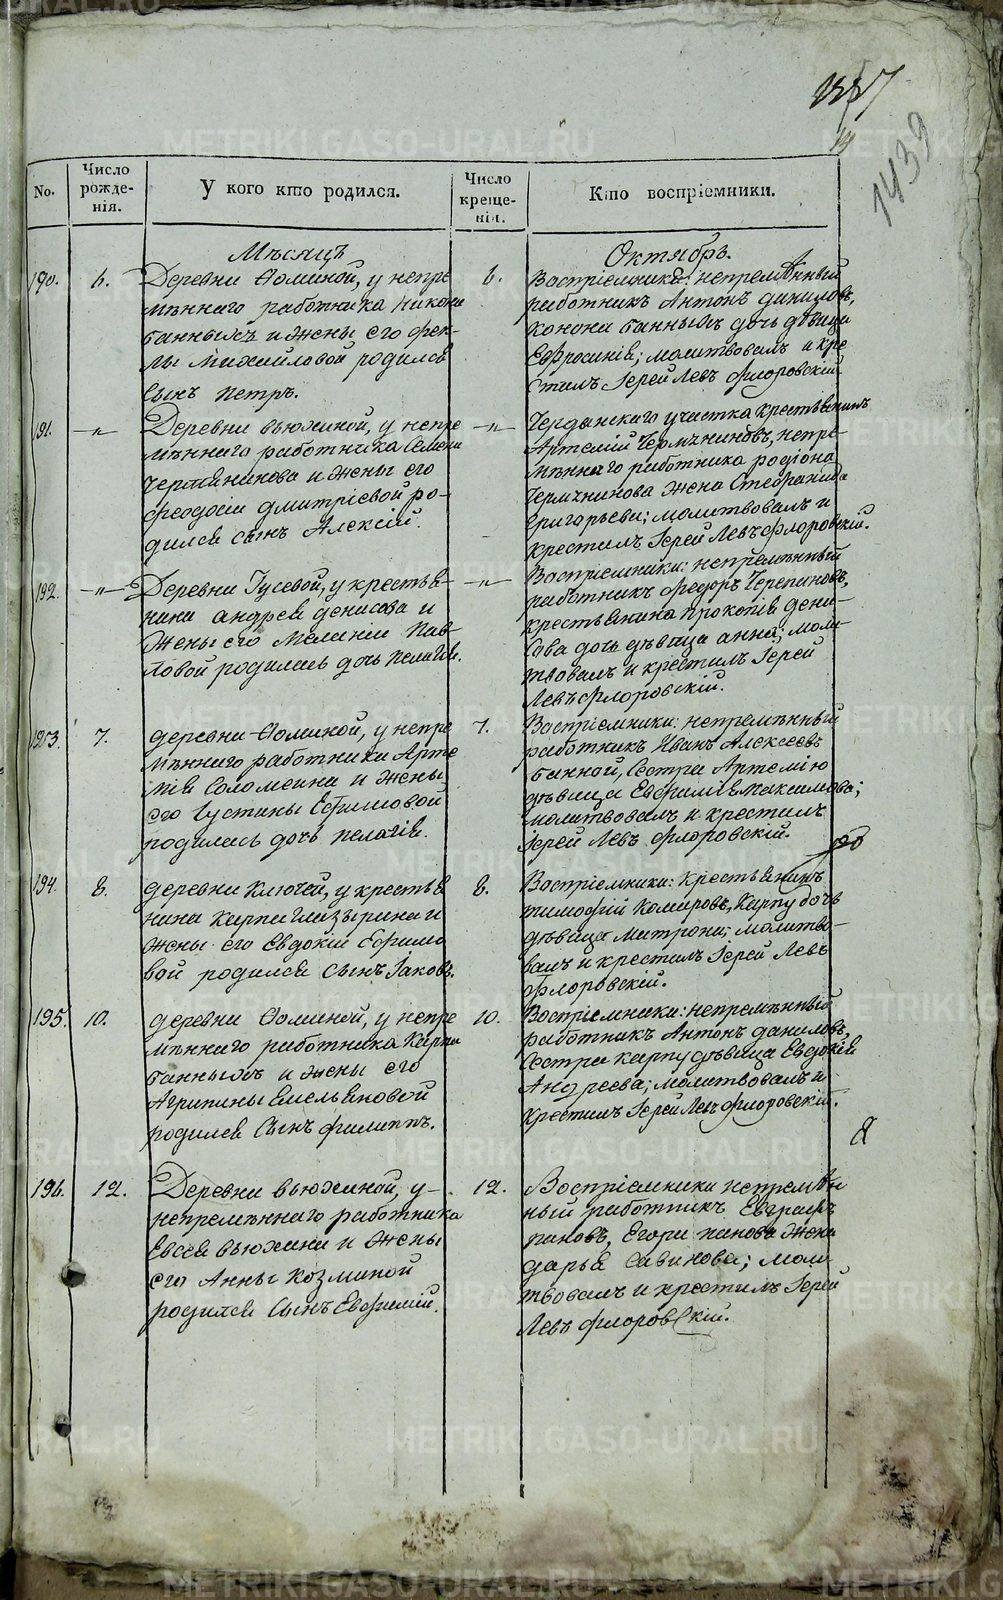 1439
No.
Число рожде-нія.
У кого кто родился.
Число креще-нія.
Кто воспріемники.
Мѣсяцъ
Октябрь.
190.
6.
Деревни Ѳоминой, у непре
мѣннаго работника Никона
Банныхъ и жены его Фек-
лы Михайловой родился
сынъ Петръ.
6.
Воспріемники: непремѣнный
работникъ Антонъ Даниловъ,
Конона Банныхъ дочь дѣвица
Евфросинія; молитвовалъ и кре
стилъ Іерей Левъ Флоровскій
191.
-"-
Деревни Вьюхиной, у непре
мѣннаго работника Семена
Чермянинова и жены его
Феодосіи Дмитріевой ро-
дился сынъ Алексій.
-"-
участка крестьянинъ
Артемій непре-
мѣннаго работника Родіона
жена Стефанида
Григорьева; молитвовалъ и
крестилъ Іерей Левъ Флоровскій.
192.
-"-
Деревни Гусевой, у крестья-
нина Андрея Денисова и
жены его Меланіи Пав-
ловой родилась дочь Пелагія.
-"-
Воспріемники: непремѣнный
работникъ Федоръ Черепановъ,
крестьянина Прокопія Дени-
сова дочь дѣвица Анна; моли-
твовалъ и крестилъ Іерей
Левъ Флоровскій.
193.
7.
Деревни Ѳоминой, у непре
мѣннаго работника Арте
мія Соломеина и жены
его Густины Ефимовой
родилась дочь Пелагія.
7.
Воспріемники: непремѣнный
работникъ Иванъ Алексеевъ
Банной, сестра Артемію
дѣвица Евфимія Максимова;
молитвовалъ и крестилъ
Іерей Левъ Флоровскій.
194.
8.
Деревни Ключей, у крестья
нина Карпа Глазырина и
жены его Евдокіи Ефимо
вой родился сынъ Іаковъ.
8.
Воспріемники: крестьянинъ
Тимофій Комаровъ, Карпу дочь
дѣвица Матрона; молитво-
валъ и крестилъ Іерей Левъ
Флоровскій.
195.
10.
Деревни Ѳоминой, у непре
мѣннаго работника Карпа
Банныхъ и жены его
Агрипины Емельяновой
родился сынъ Филиппъ.
10.
Воспріемники: непремѣнный
работникъ Антонъ Даниловъ,
сестра Карпу дѣвица Евдокія
Андреева; молитвовалъ и
крестилъ Іерей Левъ Флоровскій.
196.
12.
Деревни Вьюхиной, у
непремѣннаго работника
Евсея Вьюхина и жены
его Анны Козминой
родился сынъ Евфимій.
12.
Воспріемники непремѣн
ный работникъ Евграфъ
Пановъ, Егора Панова жена
Дарья Савинова; моли
твовалъ и крестилъ Іерей
Левъ Флоровскій.
METRIKI.GASO-URAL.RU